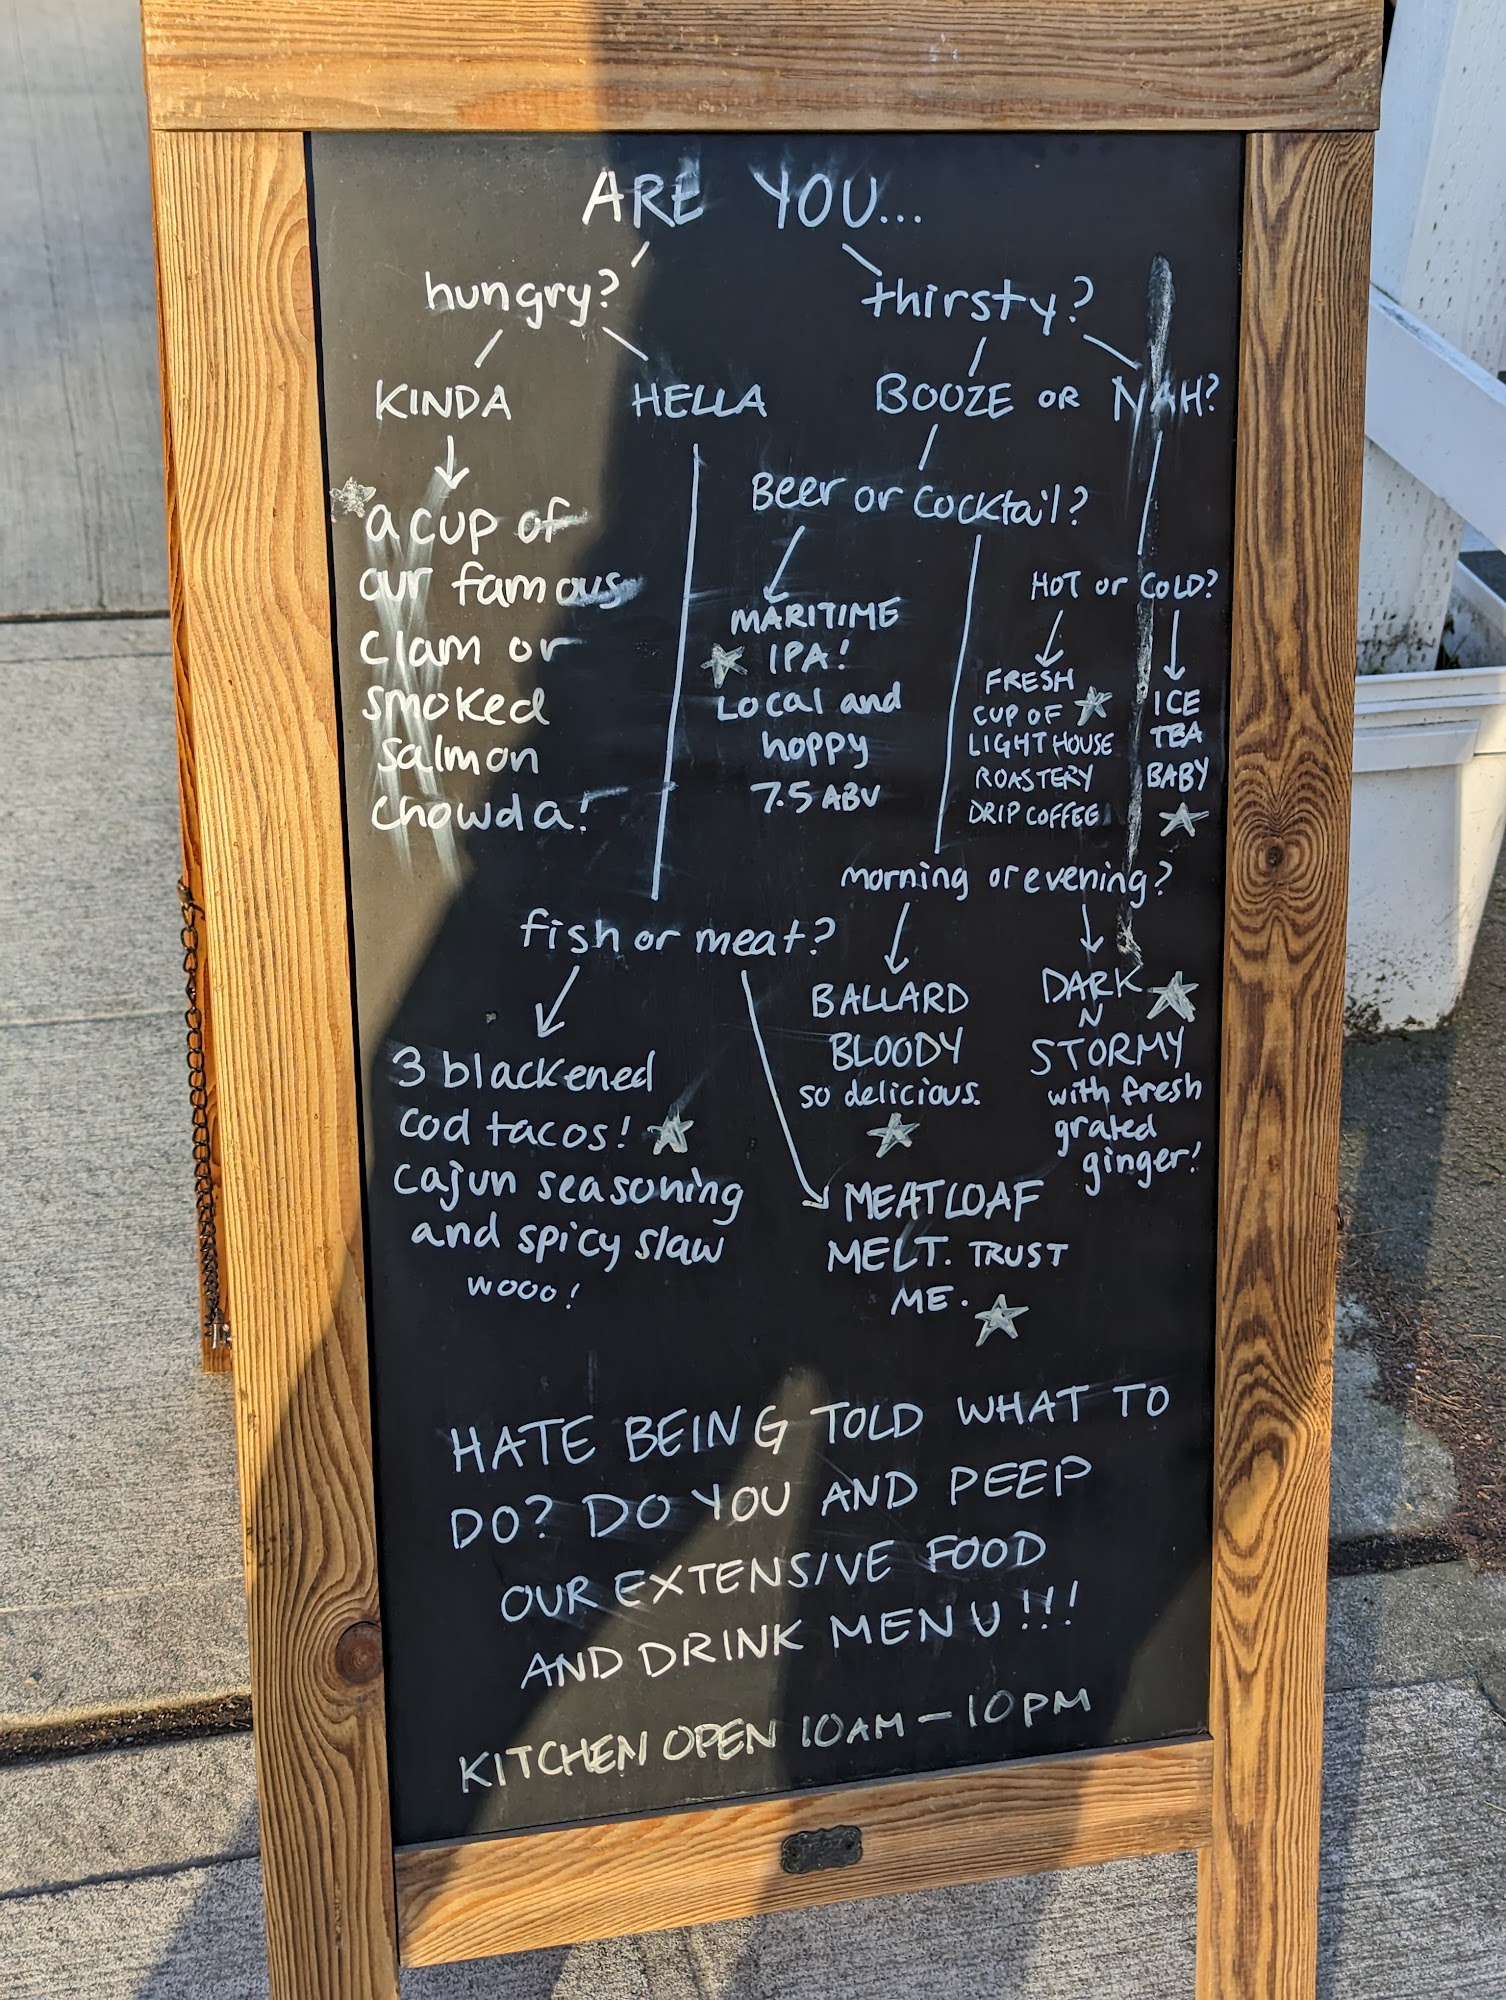 ARE YOU...
hungry?
thirsty?
KINDA
HELLA
BOOZE OR NAH?
a cup of
our famous
clam or
smoked
salmon
chowda!
Beer or Cocktail?
MARITIME
IPA!
Local and
hoppy
7.5 ABV
HOT or COLD?
FRESH
CUP OF
LIGHTHOUSE
ROASTERY
DRIP COFFEE
ICE
TEA
BABY
morning or evening?
fish or meat?
BALLARD
BLOODY
so delicious.
DARK
N
STORMY
with fresh
grated
ginger!
3 blackened
cod tacos!
cajun seasoning
and spicy slaw
wooo!
MEATLOAF
MELT. TRUST
ME.
HATE BEING TOLD WHAT TO
DO? DO YOU AND PEEP
OUR EXTENSIVE FOOD
AND DRINK MENU!!!
KITCHEN OPEN 10AM - 10PM